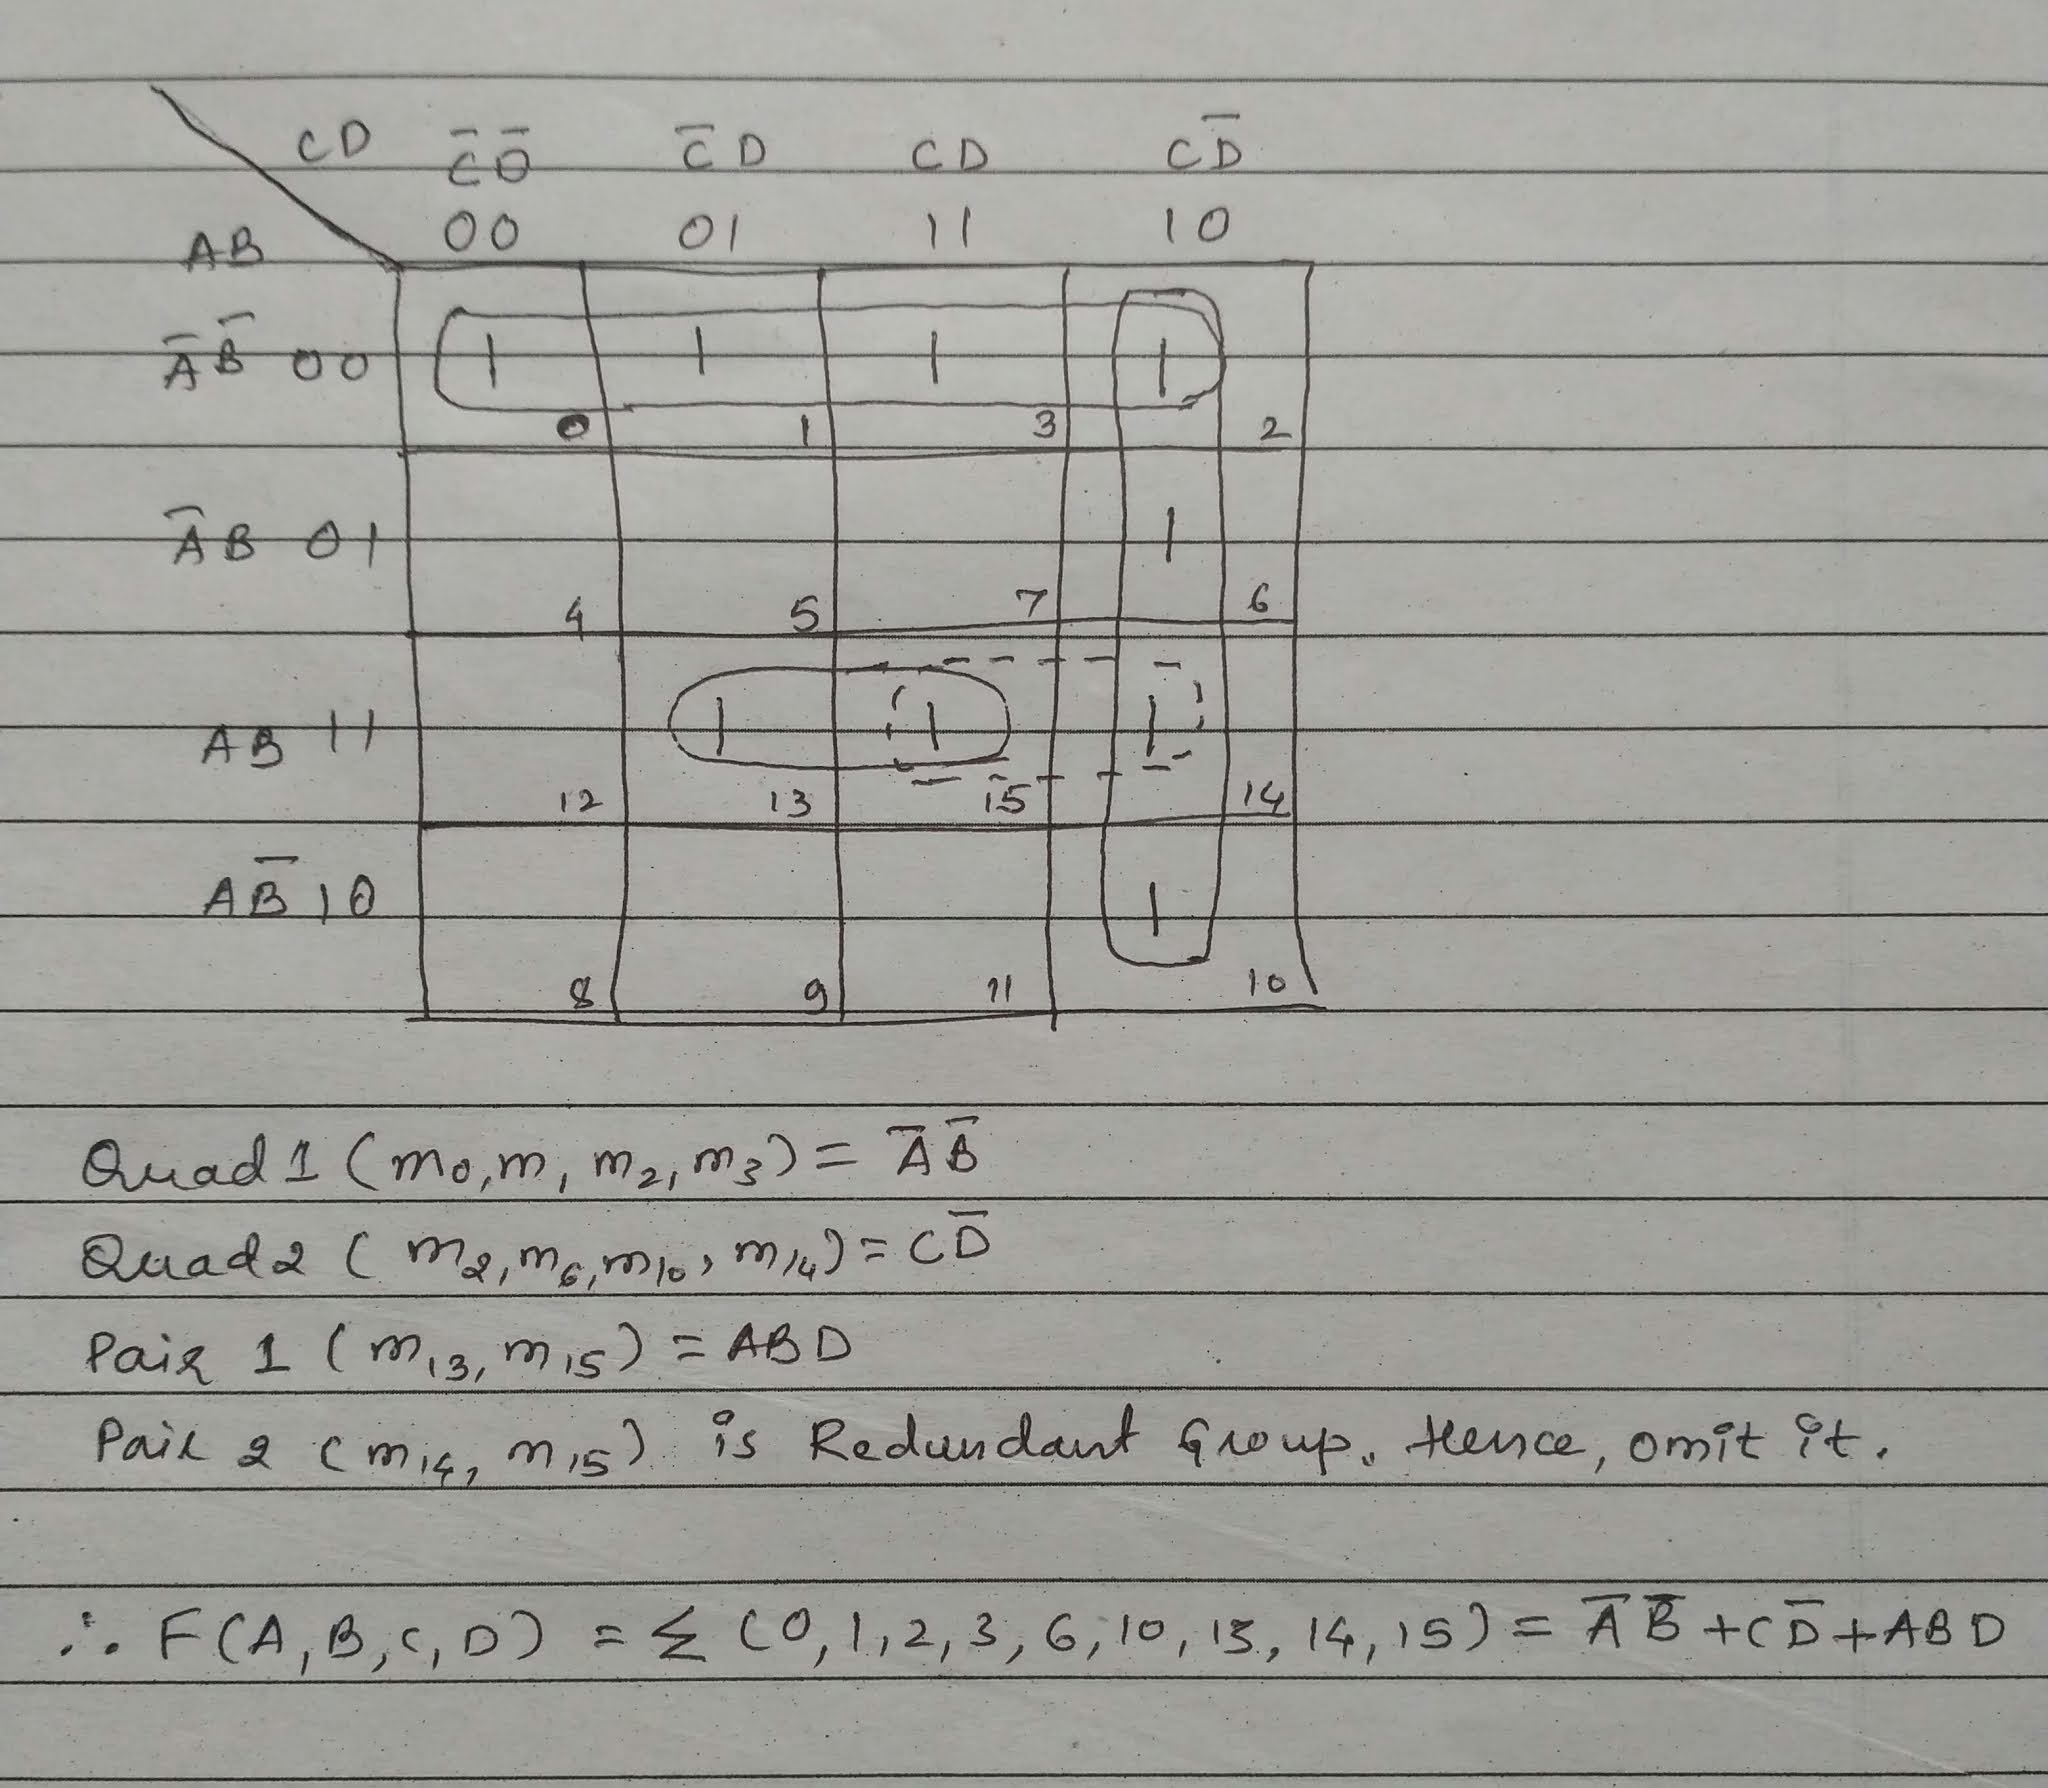 CD C̅D̅ C̅D CD CD̅
AB 00 01 11 10
A̅B̅ 00 1 1 1 1
0 1 3 2
A̅B 01 1
4 5 7 6
AB 11 1 1 1
12 13 15 14
AB̅ 10 1
8 9 11 10
Quad 1 (m₀,m₁ m₂,m₃) = A̅B̅
Quad 2 (m₂,m₆,m₁₀, m₁₄) = CD̅
Pair 1 (m₁₃, m₁₅) = ABD
Pair 2 (m₁₄, m₁₅) is Redundant Group. Hence, omit it.
∴ F(A,B,C,D) = Σ (0,1,2,3,6,10,13,14,15) = A̅B̅+CD̅+ABD